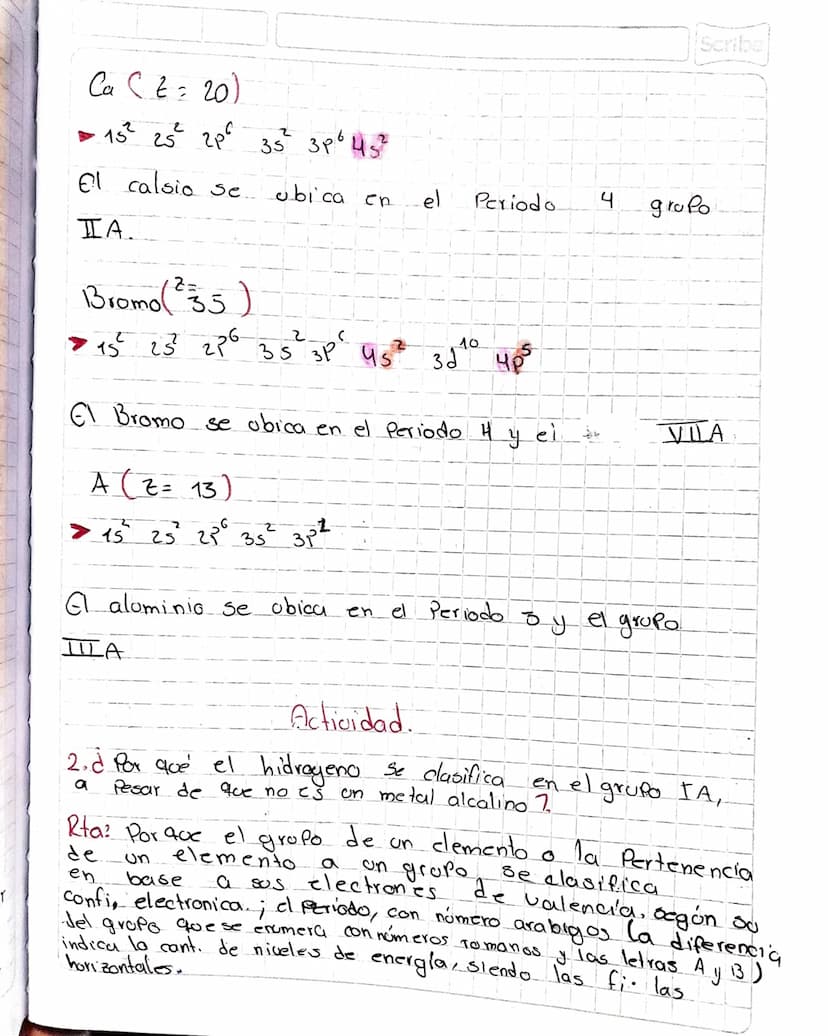 Scribe
Ca (Z = 20)
➤ 1s² 2s² 2p⁶ 3s² 3p⁶ 4s²
El calsio se ubica en el Periodo 4 grupo
IIA.
Bromo (Z= 35)
➤ 1s² 2s² 2p⁶ 3s² 3p⁶ 4s² 3d¹⁰ 4p⁵
El Bromo se ubica en el Periodo 4 y el VIIA
A (Z= 13)
➤ 1s² 2s² 2p⁶ 3s² 3p¹
El aluminio se ubica en el Periodo 3 y el grupo
IIIA
Actividad.
2. ¿Por qué el hidrogeno se clasifica en el grupo IA,
a pesar de que no es un metal alcalino?
Rta: Porque el grupo de un elemento o la Pertenencia
de un elemento a un grupo, se clasifica
en base a sus electrones de valencia, según su
confi. electronica.; el Periodo, con número arabigos (a diferencia
del grupo que se enumera con números romanos y las letras A y B)
indica la cant. de niveles de energía, siendo las fi. las
horizontales.